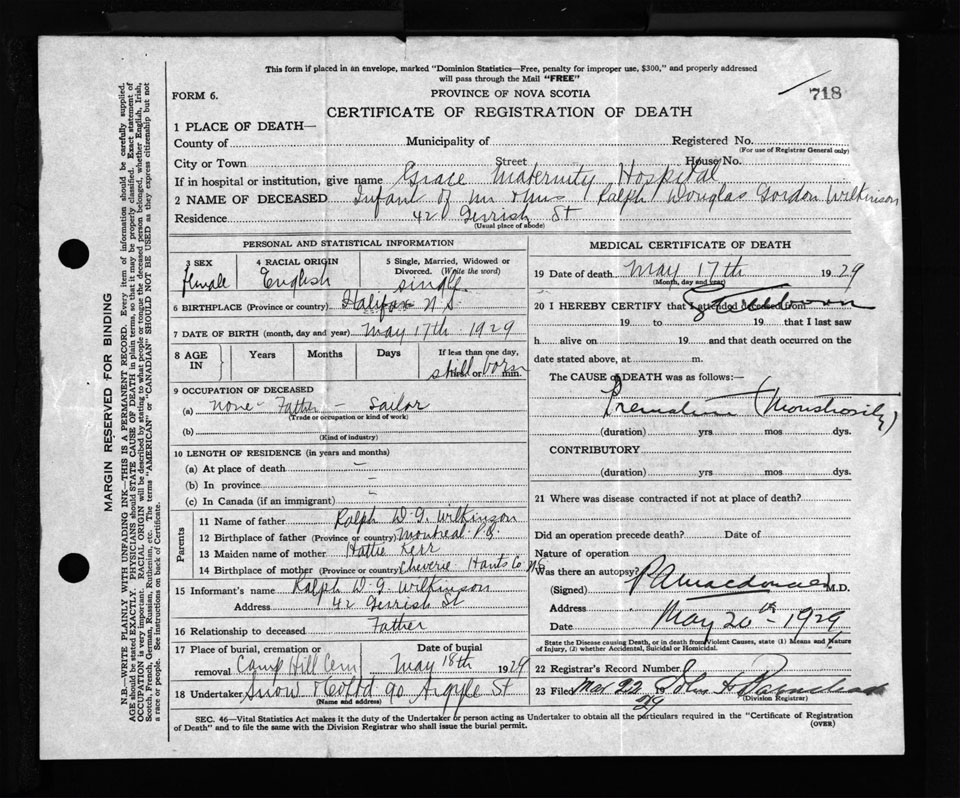 This form if placed in an envelope, marked "Dominion Statistics—Free, penalty for improper use, $300," and properly addressed
will pass through the Mail "FREE"
FORM 6.
PROVINCE OF NOVA SCOTIA
718
CERTIFICATE OF REGISTRATION OF DEATH
1 PLACE OF DEATH—
County of Municipality of Registered No.
(For use of Registrar General only)
City or Town Street House No.
If in hospital or institution, give name Grace Maternity Hospital
2 NAME OF DECEASED Infant of Mr & Mrs Ralph Douglas Gordon Wilkinson
Residence 42 Gerrish St
(Usual place of abode)
PERSONAL AND STATISTICAL INFORMATION
3 SEX 4 RACIAL ORIGIN 5 Single, Married, Widowed or
Divorced. (Write the word)
Female English single
6 BIRTHPLACE (Province or country) Halifax N S
7 DATE OF BIRTH (month, day and year) May 17th 1929
8 AGE IN Years Months Days If less than one day,
hrs. or min.
still born
9 OCCUPATION OF DECEASED
(a) none - Father - Sailor
(Trade or occupation or kind of work)
(b)
(Kind of industry)
10 LENGTH OF RESIDENCE (in years and months)
(a) At place of death –
(b) In province –
(c) In Canada (if an immigrant) –
Parents
11 Name of father Ralph D. G. Wilkinson
12 Birthplace of father (Province or country) Montreal P.Q.
13 Maiden name of mother Hattie Kerr
14 Birthplace of mother (Province or country) Cheverie Hants Co N S
15 Informant's name Ralph D. G. Wilkinson
Address 42 Gerrish St
16 Relationship to deceased Father
17 Place of burial, cremation or removal Camp Hill Cem
Date of burial May 18th 1929
18 Undertaker Snow & Co Ltd 90 Argyle St
(Name and address)
MEDICAL CERTIFICATE OF DEATH
19 Date of death May 17th 1929
(Month, day and year)
20 I HEREBY CERTIFY that I attended deceased from
Stillborn
19 to 19 that I last saw
h alive on 19 and that death occurred on the
date stated above, at m.
The CAUSE of DEATH was as follows:—
Premature (Monstrosity)
(duration) yrs mos dys.
CONTRIBUTORY
(duration) yrs mos dys.
21 Where was disease contracted if not at place of death?
Did an operation precede death? Date of
Nature of operation
Was there an autopsy?
(Signed) Macdonald M.D.
Address
Date May 20th - 1929
State the Disease causing Death, or in death from Violent Causes, state (1) Means and Nature
of Injury, (2) whether Accidental, Suicidal or Homicidal.
22 Registrar's Record Number
23 Filed 22 19 29 John
(Division Registrar)
SEC. 46—Vital Statistics Act makes it the duty of the Undertaker or person acting as Undertaker to obtain all the particulars required in the "Certificate of Registration
of Death" and to file the same with the Division Registrar who shall issue the burial permit.
(OVER)
MARGIN RESERVED FOR BINDING
N.B.—WRITE PLAINLY WITH UNFADING INK—THIS IS A PERMANENT RECORD. Every item of information should be carefully supplied.
AGE should be stated EXACTLY. PHYSICIANS should STATE CAUSE OF DEATH in plain terms, so that it may be properly classified. Exact statement of
OCCUPATION is very important. RACIAL ORIGIN will be described by stating to what people or tongue the deceased person belonged, whether English, Irish,
Scotch, French, German, Russian, Ruthenian, etc. The terms "AMERICAN" or "CANADIAN" SHOULD NOT BE USED as they express citizenship but not
a race or people. See instructions on back of Certificate.